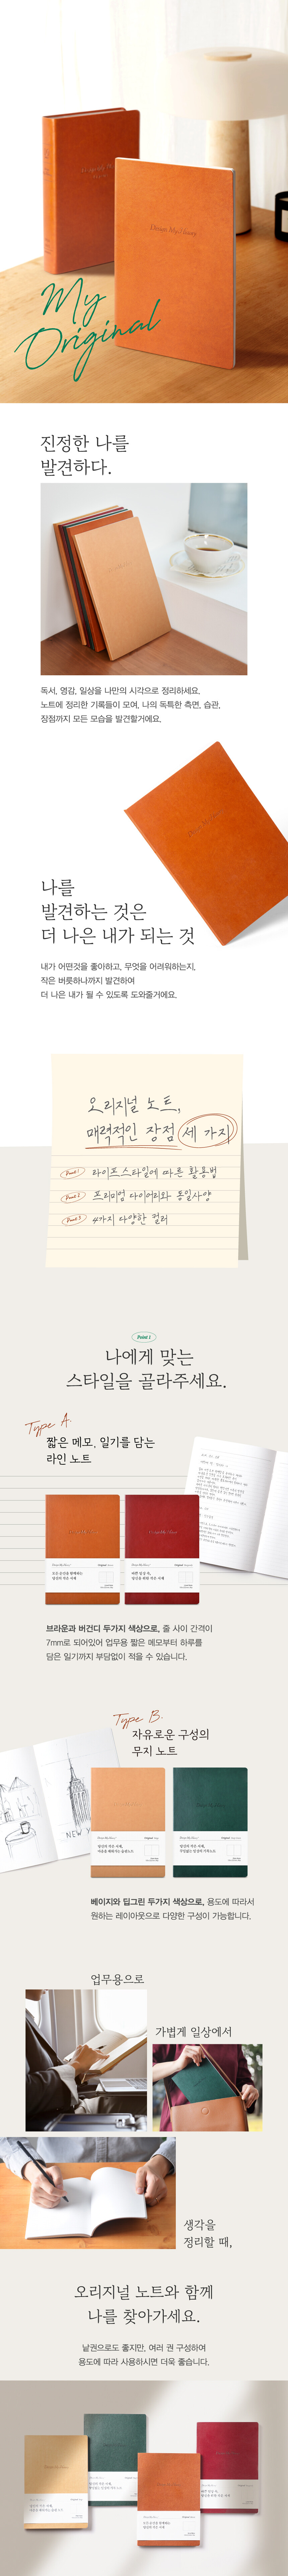 Dear My Hours
My
Original
진정한 나를
발견하다.
독서, 영감, 일상을 나만의 시각으로 정리하세요.
노트에 정리한 기록들이 모여, 나의 독특한 측면, 습관,
장점까지 모든 모습을 발견할거에요.
나를
발견하는 것은
더 나은 내가 되는 것
내가 어떤것을 좋아하고, 무엇을 어려워하는지,
작은 버릇하나까지 발견하여
더 나은 내가 될 수 있도록 도와줄거에요.
오리지널 노트,
매력적인 장점 세 가지
Point 1 라이프스타일에 따른 활용법
Point 2 프리미엄 다이어리와 동일사양
Point 3 4가지 다양한 컬러
Point 1
나에게 맞는
스타일을 골라주세요.
Type A.
짧은 메모, 일기를 담는
라인 노트
브라운과 버건디 두가지 색상으로, 줄 사이 간격이
7mm로 되어있어 업무용 짧은 메모부터 하루를
담은 일기까지 부담없이 적을 수 있습니다.
Type B.
자유로운 구성의
무지 노트
NEW Y
베이지와 딥그린 두가지 색상으로, 용도에 따라서
원하는 레이아웃으로 다양한 구성이 가능합니다.
업무용으로
가볍게 일상에서
생각을
정리할 때,
오리지널 노트와 함께
나를 찾아가세요.
낱권으로도 좋지만, 여러 권 구성하여
용도에 따라 사용하시면 더욱 좋습니다.